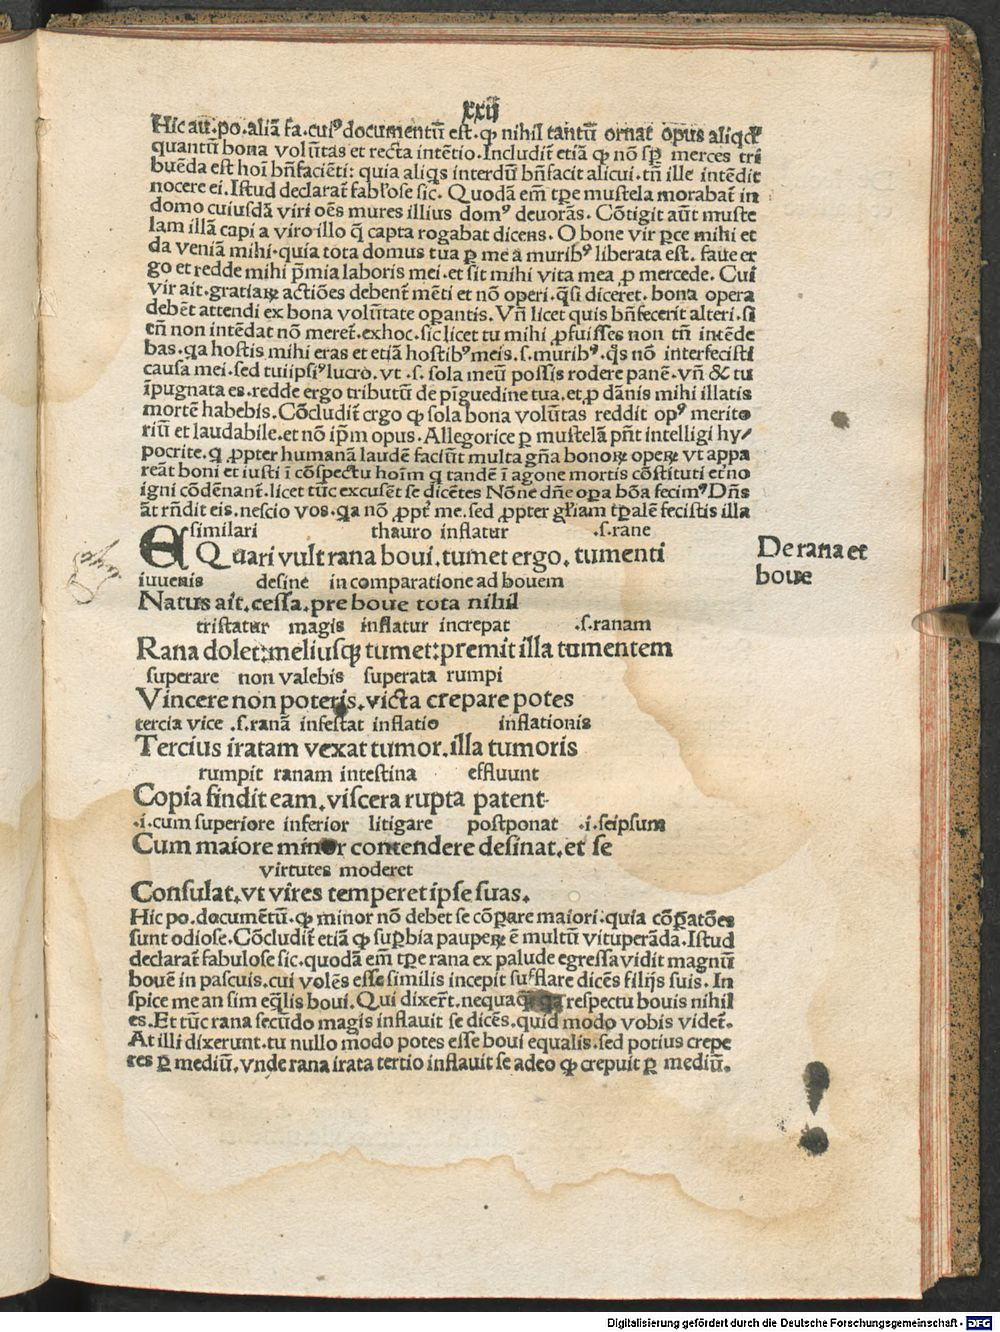 xxij
Hic au̅.po.aliā fa.cui⁹ documentū est.ꝙ nihil tantū ornat opus aliqđ
quantū bona volūtas et recta intētio.Includit̄ etiā ꝙ nō sꝑ merces tri
buēda est hoī bn̄faciēti: quia aliqs interdū bn̄facit alicui.tn̄ ille intēdit
nocere ei.Istud declarat̄ fablose sic. Quodā em̄ tꝑe mustela morabat̄ in
domo cuiusdā viri oēs mures illius dom⁹ deuorās. Cōtigit aūt muste
lam illā capi a viro illo q̄ capta rogabat dicens. O bone vir ꝑce mihi et
da veniā mihi.quia tota domus tua ꝑ me a murib⁹ liberata est. faue er
go et redde mihi p̄mia laboris mei.et sit mihi vita mea ꝓ mercede. Cui
vir ait.gratiaꝝ actiōes debent̄ mēti et nō operi.q̄si diceret. bona opera
debēt attendi ex bona volūtate oꝑantis. Vn̄ licet quis bn̄fecerit alteri.si
tn̄ non intēdat nō meret̄.exhoc.sic licet tu mihi ꝓfuisses non tn̄ intēde
bas.qa hostis mihi eras et etiā hostib⁹ meis.s.murib⁹.q̄s nō interfecisti
causa mei.sed tuiipsi⁹ lucro.vt .s. sola meū possis rodere panē.vn̄ & tu
īpugnata es.redde ergo tributū de pīguedine tua.et.ꝓ dānis mihi illatis
mortē habebis.Cōcludit̄ ergo ꝙ sola bona volūtas reddit op⁹ merito
riū et laudabile.et nō ip̄m opus.Allegorice ꝑ mustelā pn̄t intelligi hy/
pocrite.q ꝓpter humanā laudē faciūt multa gn̄a bonoꝝ opeꝝ vt appa
reāt boni et iusti ī cōspectu hoīm q tandē ī agone mortis cōstituti et̄no
igni cōdēnant̄.licet tūc excusēt se dicētes Nōne dn̄e oꝑa bōa fecim⁹ Dn̄s
āt rn̄dit eis.nescio vos.qa nō ꝓpt̄ me.sed ꝓpter gl̄iam tꝑalē fecistis illa
similari thauro inflatur .s.rane
EQuari vult rana boui.tumet ergo. tumenti
De rana et
boue
iuuenis desine in comparatione ad bouem
Natus ait.cessa.pre boue tota nihil
tristatur magis inflatur increpat .s.ranam
Rana dolet:meliusqꝫ tumet:premit illa tumentem
superare non valebis superata rumpi
Vincere non poteris.victa crepare potes
tercia vice .s.ranā infestat inflatio inflationis
Tercius iratam vexat tumor.illa tumoris
rumpit ranam intestina effluunt
Copia findit eam.viscera rupta patent.
.i.cum superiore inferior litigare postponat .i.seipsum
Cum maiore minor contendere desinat.et se
virtutes moderet
Consulat.vt vires temperet ipse suas.
Hic po.documētū.ꝙ minor nō debet se cōꝑare maiori:quia cōꝑatōes
sunt odiose.Cōcludit̄ etiā ꝙ suꝑbia paupeꝝ ē multū vituperāda.Istud
declarat̄ fabulose sic.quodā em̄ tꝑe rana ex palude egressa vidit magnū
bouē in pascuis.cui volēs esse similis incepit sufflare dicēs filijs suis. In
spice me an sim eq̄lis boui.Qui dixert̄.nequaꝗ̄ qa respectu bouis nihil
es.Et tūc rana secūdo magis inflauit se dicēs.quid modo vobis videt̄.
At illi dixerunt.tu nullo modo potes esse boui equalis.sed potius crepe
res ꝑ mediū.vnde rana irata tertio inflauit se adeo ꝙ crepuit ꝑ mediū.
Digitalisierung gefördert durch die Deutsche Forschungsgemeinschaft - DFG